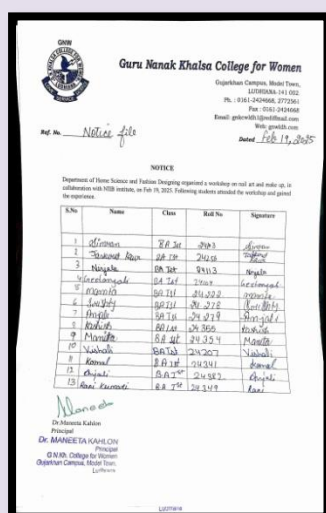 GNW
Guru Nanak Khalsa College for Women
Gujarkhan Campus, Model Town,
LUDHIANA-141 002.
Ph. : 0161-2424668, 2772561
Fax : 0161-2424668
Web: gncwldh.com
Ref. No. Notice file
Dated Feb 19, 2025
NOTICE
Department of Home Science and Fashion Designing organized a workshop on nail art and make up, in
collaboration with NIIB institute, on Feb 19, 2025. Following students attended the workshop and gained
the experience.
S.No Name Class Roll No Signature
1 Simran BA Ist Simran
2 BA Ist 24256
3 BA Ist 24113
4 Geetanjali BA Ist Geetanjali
5 Mamta BA Ist Mamta
6 BA Ist 24278
7 Anjali BA Ist 24279 Anjali
8 Kashish BA Ist 24365 Kashish
9 BA Ist 24354
10 Vishali BA Ist 24207 Vishali
11 Komal BA Ist 24341 Komal
12 Anjali BA Ist 24382 Anjali
13 Rani Kumari BA Ist 24349 Rani
Dr.Maneeta Kahlon
Principal
Dr. MANEETA KAHLON
Principal
G.N.Kh. College for Women
Gujarkhan Campus, Model Town,
Ludhiana
LUDHIANA